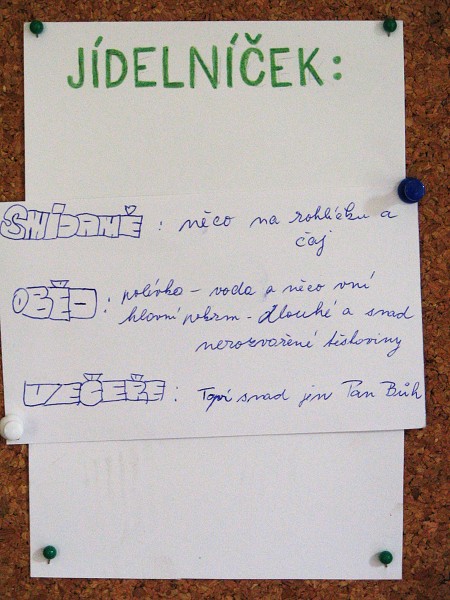 JÍDELNÍČEK:
SNÍDANĚ : něco na rohlíčku a
čaj
OBĚD : polívka - voda a něco v ní
hlavní pokrm - dlouhé a snad
nerozvařené těstoviny
VEČEŘE : snad jen Pan Bůh